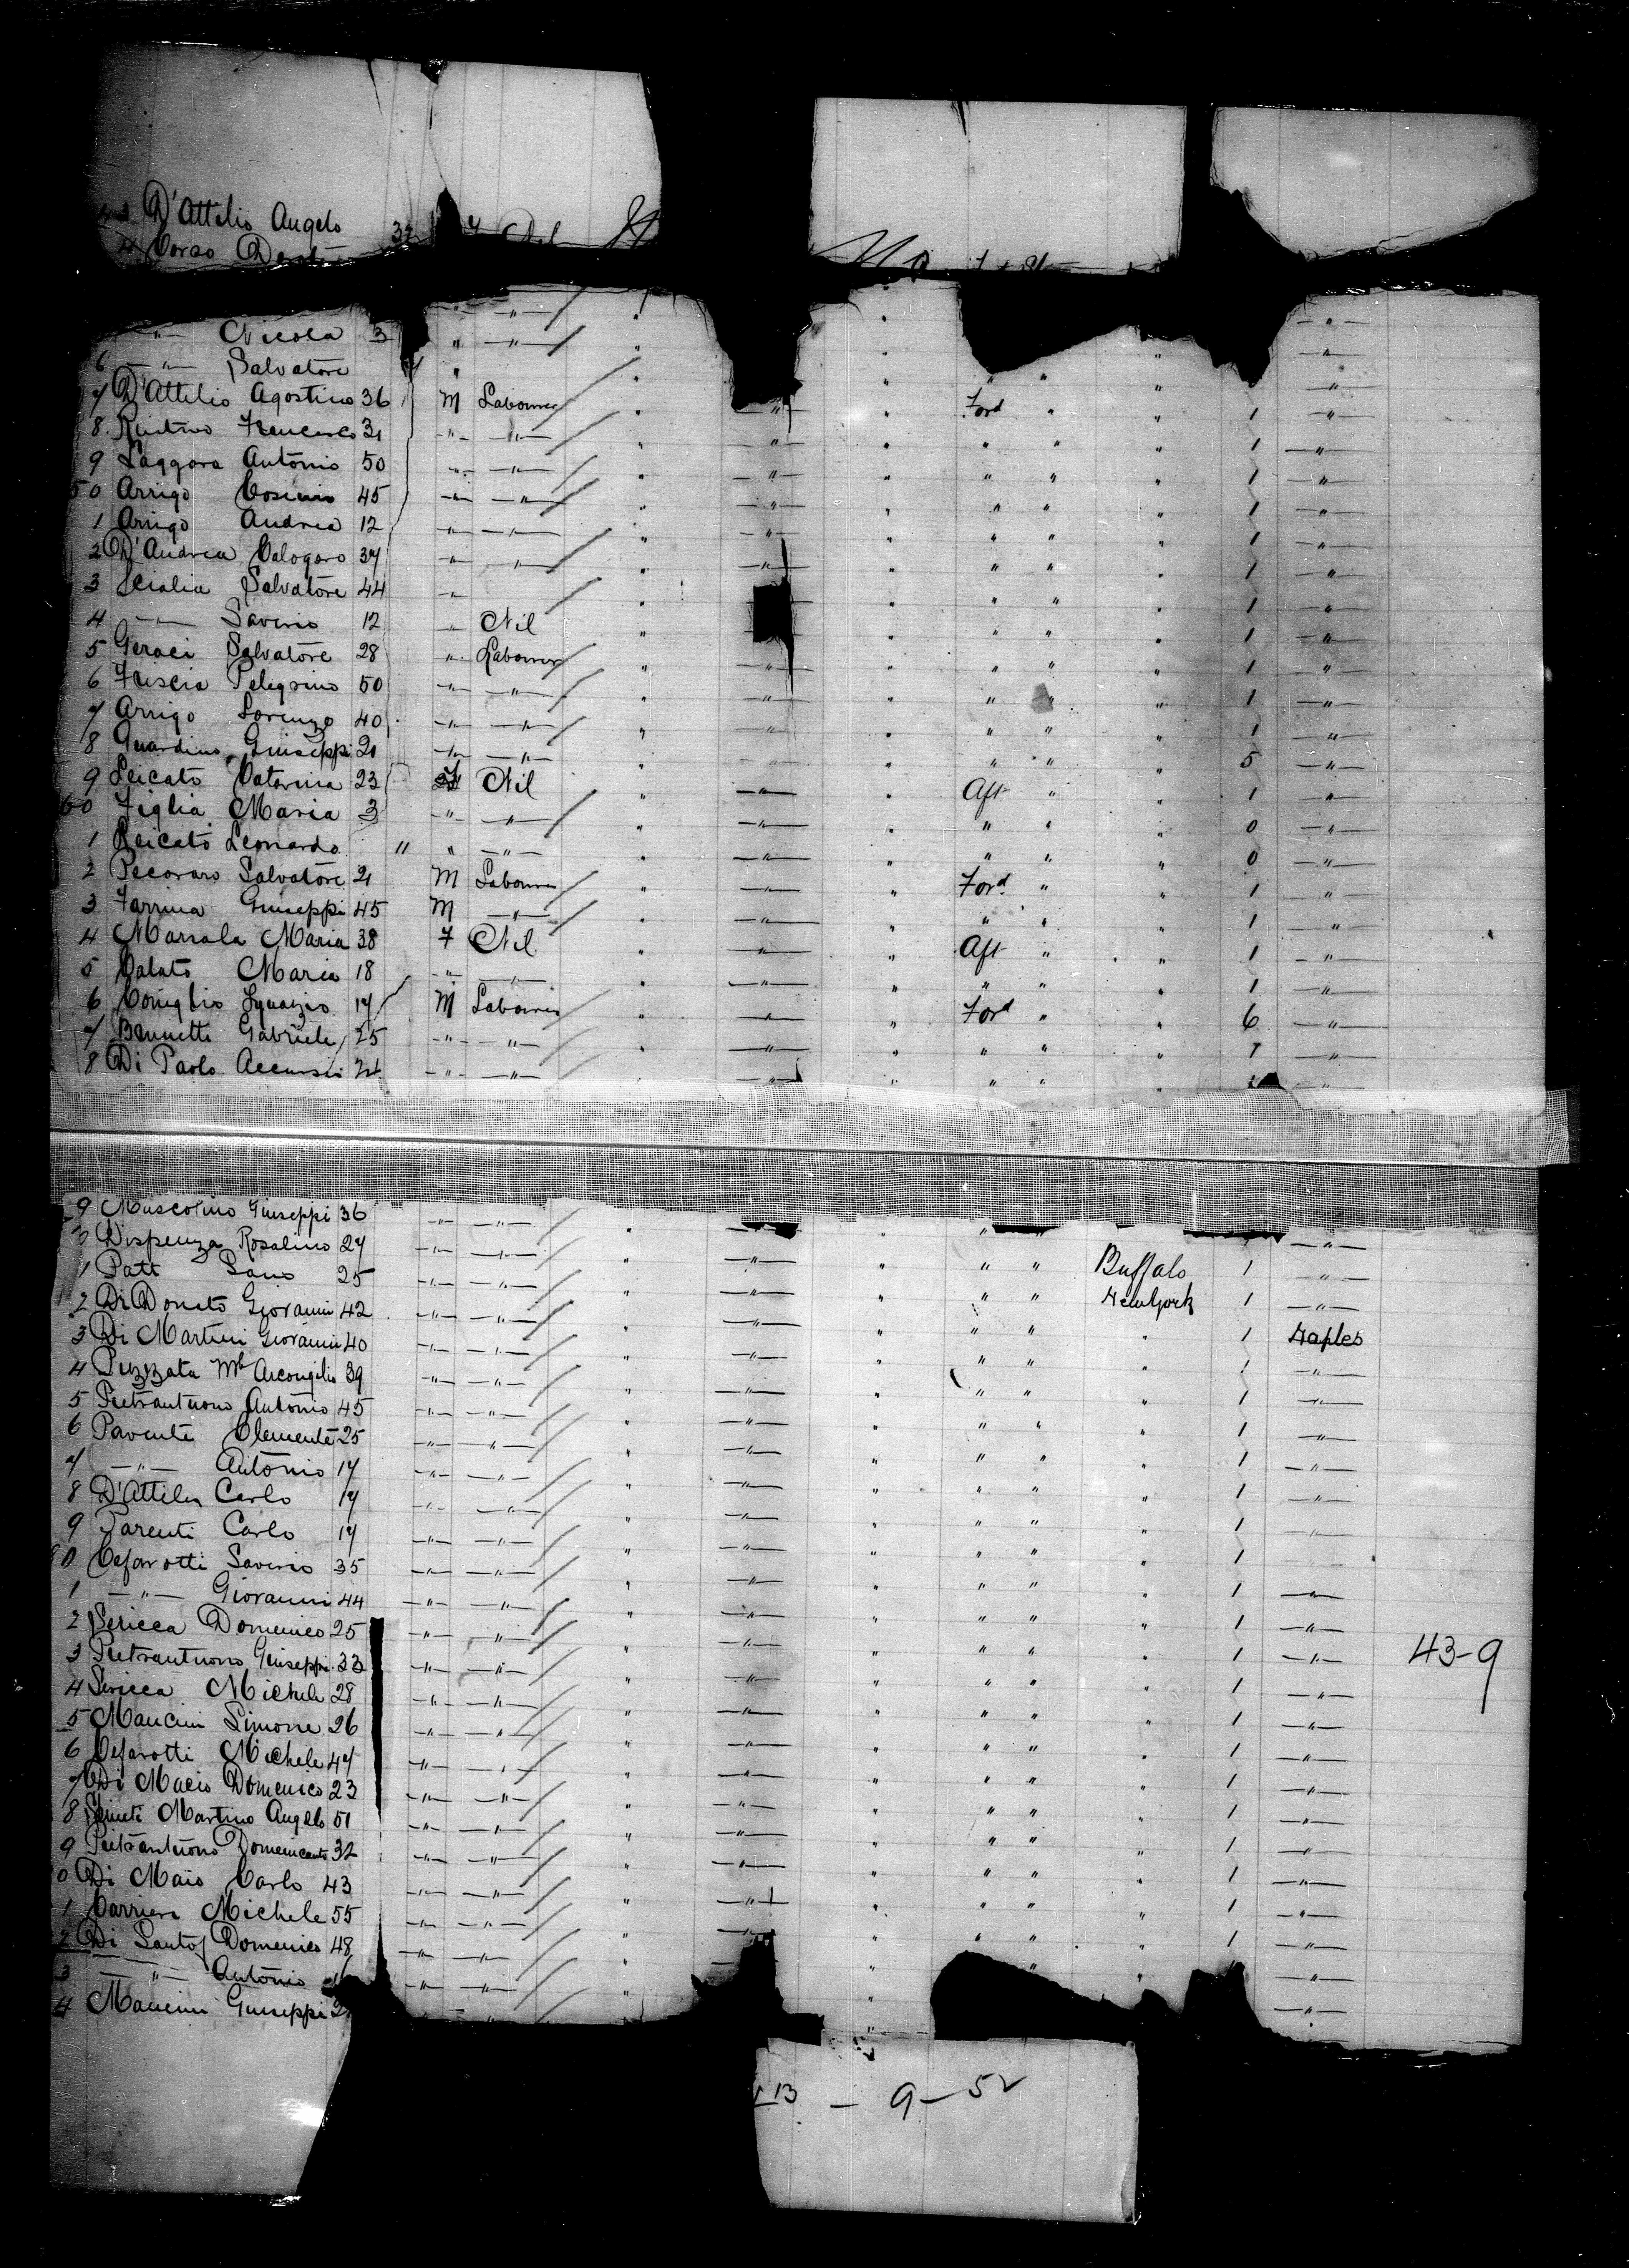 43 D'Attilio Angelo 32
4 Corso
—"— Nicola 3 " —"— " " " —"—
6 —"— Salvatore " " " " " —"—
7 D'Attilio Agostino 36 M Labourer " —"— " Ford " " 1 —"—
8 Francesco 31 —"— —"— " —"— " " " " 1 —"—
9 Laggora Antonio 50 —"— —"— " —"— " " " " 1 —"—
50 Arrigo Cosimo 45 —"— —"— " —"— " " " " 1 —"—
1 Arrigo Andrea 12 —"— —"— " —"— " " " " 1 —"—
2 D'Andrea Calogoro 37 —"— —"— " —"— " " " " 1 —"—
3 Scialia Salvatore 44 —"— " " " " " 1 —"—
4 —"— Saverio 12 —"— Nil " " " " " 1 —"—
5 Geraci Salvatore 28 —"— Labourer " —"— " " " " 1 —"—
6 Friscia Pelegrino 50 —"— —"— " —"— " " " " 1 —"—
7 Arrigo Lorenzo 40 —"— —"— " —"— " " " " 1 —"—
8 Guardino Giuseppi 21 —"— —"— " —"— " " " " 5 —"—
9 Leicato Catarina 23 F Nil " —"— " Aft " " 1 —"—
60 Figlia Maria 3 —"— —"— " —"— " " " " 0 —"—
1 Leicato Leonardo " " —"— " —"— " " " " 0 —"—
2 Pecoraro Salvatore 21 M Labourer " —"— " Ford " " 1 —"—
3 Farrina Giuseppi 45 M —"— " —"— " " " " 1 —"—
4 Marsala Maria 38 F Nil " —"— " Aft " " 1 —"—
5 Calato Maria 18 —"— —"— " —"— " " " " 1 —"—
6 Coniglio Ignazio 17 M Labourer " —"— " Ford " " 6 —"—
7 Bennetti Gabriele 25 —"— —"— " —"— " " " " 7 —"—
8 Di Paolo Accursio —"— —"— —"— " " " —"—
9 Muscolino Giuseppi 36 —"— —"— " " " " —"—
0 Dispenza Rosalino 27 —"— —"— " —"— " " " Buffalo 1 —"—
1 Patt 25 —"— —"— " —"— " " " New York 1 —"—
2 Di Donato Giovanni 42 —"— —"— " —"— " " " " 1 Naples
3 Di Martini Giovanni 40 —"— —"— " —"— " " " " 1 —"—
4 Puzzata 39 —"— —"— " —"— " " " " 1 —"—
5 Pietrantuono Antonio 45 —"— —"— " —"— " " " " 1 —"—
6 Paventi Clemente 25 —"— —"— " —"— " " " " 1 —"—
7 —"— Antonio 17 —"— —"— " —"— " " " " 1 —"—
8 D'Attilio Carlo 17 —"— —"— " —"— " " " " 1 —"—
9 Parenti Carlo 17 —"— —"— " —"— " " " " 1 —"—
80 Cefarotti Saverio 35 —"— —"— " —"— " " " " 1 —"—
1 —"— Giovanni 44 —"— —"— " —"— " " " " 1 —"—
2 Sericca Domenico 25 —"— —"— " —"— " " " " 1 —"—
3 Pietrantuono Giuseppi 33 —"— —"— " —"— " " " " 1 —"— 43-9
4 Sericca Michele 28 —"— —"— " —"— " " " " 1 —"—
5 Mancini Simone 26 —"— —"— " —"— " " " " 1 —"—
6 Cefarotti Michele 47 —"— —"— " —"— " " " " 1 —"—
7 Di Macio Domenico 23 —"— —"— " —"— " " " " 1 —"—
8 Martino Angelo 51 —"— —"— " —"— " " " " 1 —"—
9 Pietrantuono 32 —"— —"— " —"— " " " " 1 —"—
0 Di Maio Carlo 43 —"— —"— " —"— " " " " 1 —"—
1 Carriera Michele 55 —"— —"— " —"— " " " " 1 —"—
2 Di Santo Domenico 48 —"— —"— " " " " " —"—
3 —"— Antonio —"— —"— " " —"—
4 Mancini Giuseppi
13 - 9 - 52